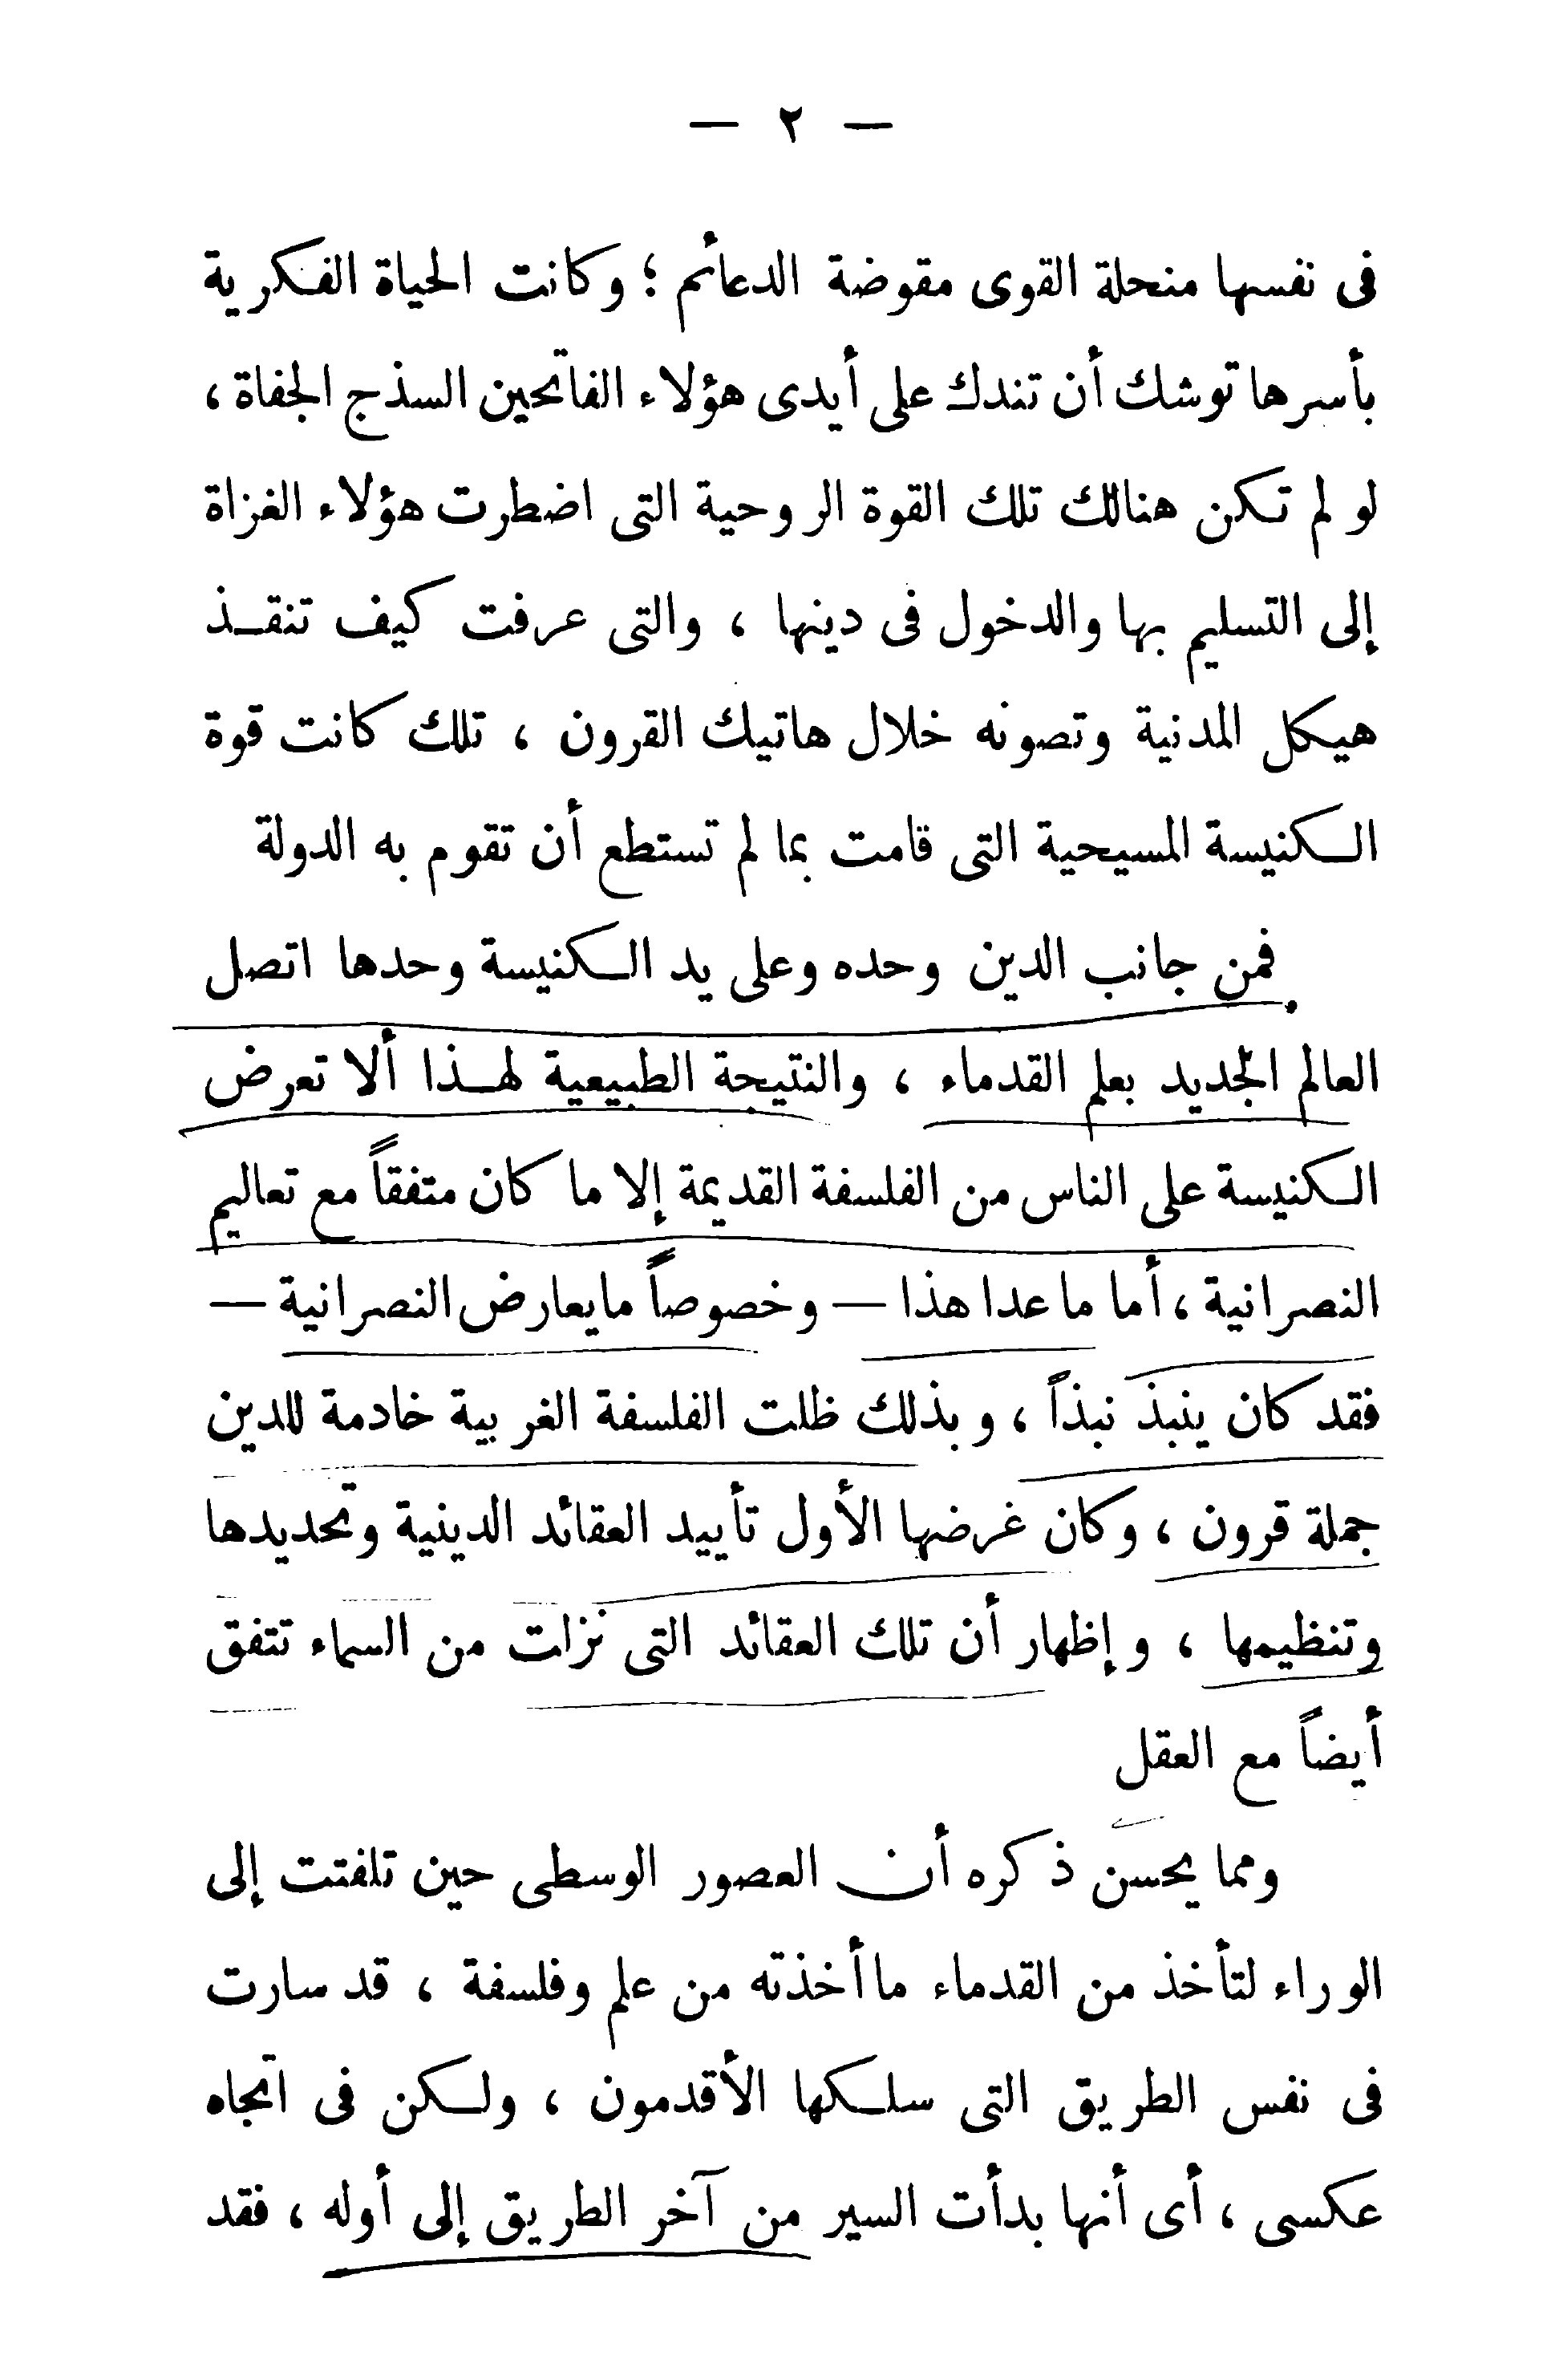 — ٢ —
فى نفسها منحلة القوى مقوضة الدعائم ؛ وكانت الحياة الفكرية
بأسرها توشك أن تندك على أيدى هؤلاء الفاتحين السذج الجفاة ،
لو لم تكن هنالك تلك القوة الروحية التى اضطرت هؤلاء الغزاة
إلى التسليم بها والدخول فى دينها ، والتى عرفت كيف تنقذ
هيكل المدنية وتصونه خلال هاتيك القرون ، تلك كانت قوة
الكنيسة المسيحية التى قامت بما لم تستطع أن تقوم به الدولة
فمن جانب الدين وحده وعلى يد الكنيسة وحدها اتصل
العالم الجديد بعلم القدماء ، والنتيجة الطبيعية لهذا ألا تعرض
الكنيسة على الناس من الفلسفة القديمة إلا ما كان متفقاً مع تعاليم
النصرانية ، أما ما عدا هذا — وخصوصاً مايعارض النصرانية —
فقد كان ينبذ نبذاً ، وبذلك ظلت الفلسفة الغربية خادمة للدين
جملة قرون ، وكان غرضها الأول تأييد العقائد الدينية وتحديدها
وتنظيمها ، وإظهار أن تلك العقائد التى نزلت من السماء تتفق
أيضاً مع العقل
ومما يحسن ذكره أن العصور الوسطى حين تلفتت إلى
الوراء لتأخذ من القدماء ماأخذته من علم وفلسفة ، قد سارت
فى نفس الطريق التى سلكها الأقدمون ، ولكن فى اتجاه
عكسى ، أى أنها بدأت السير من آخر الطريق إلى أوله ، فقد